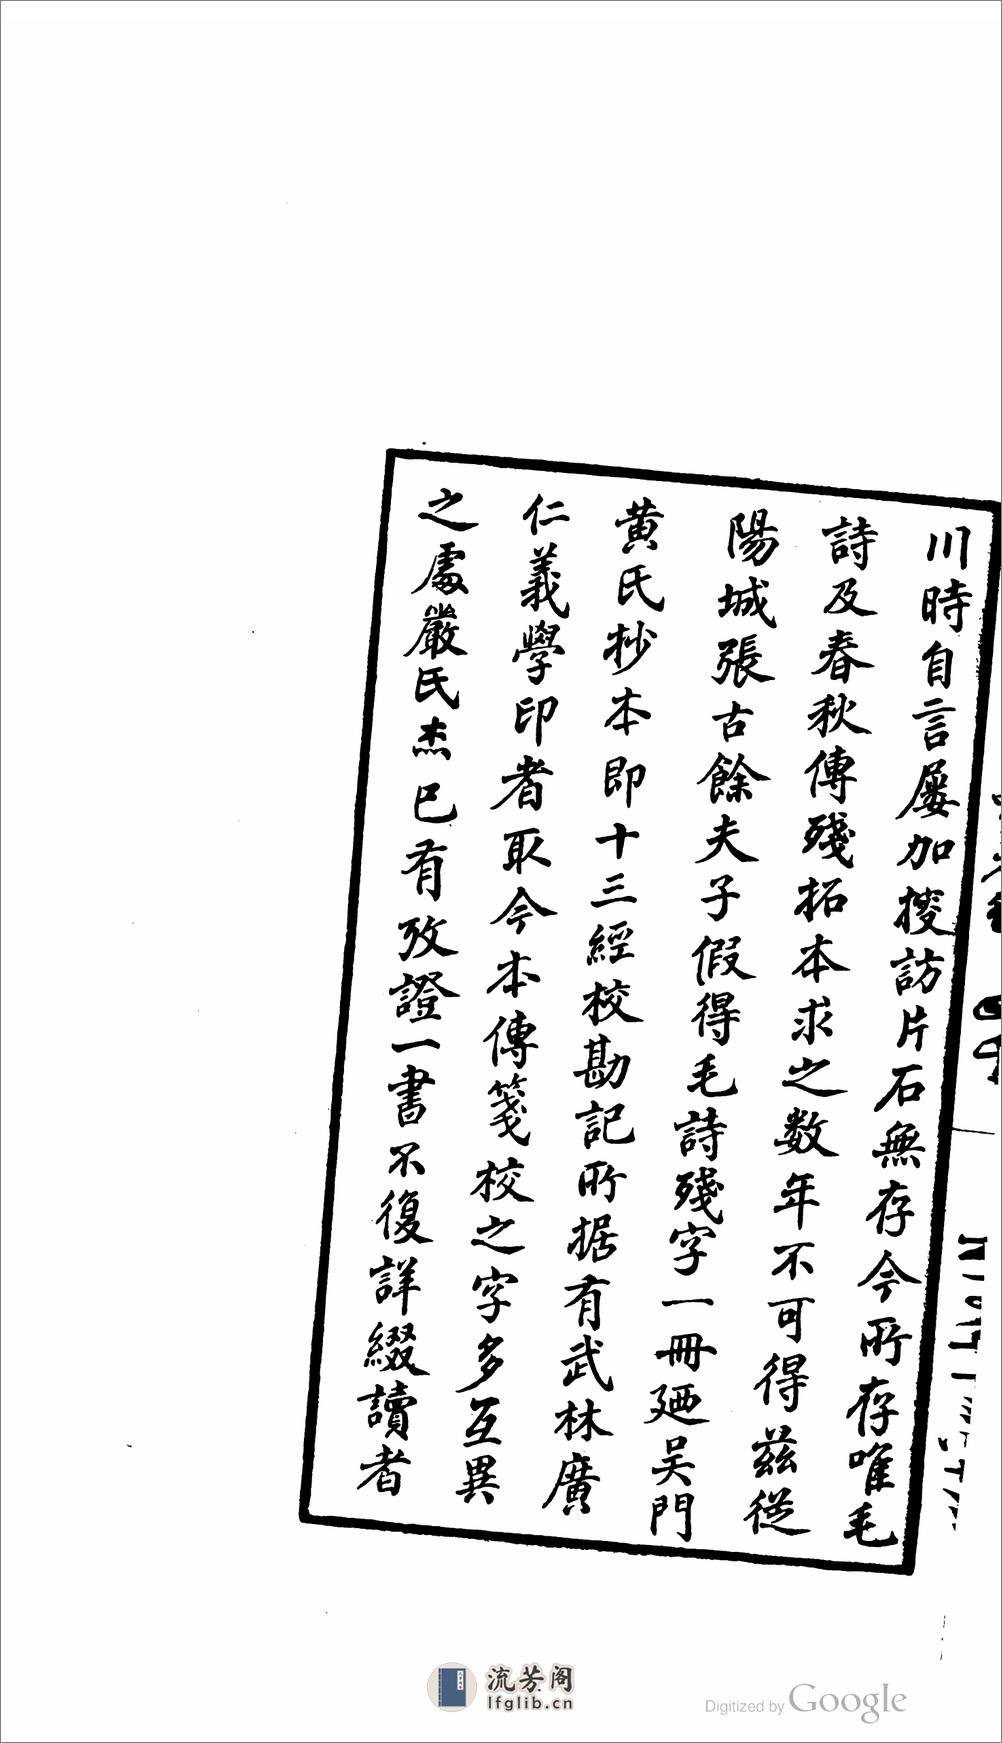 川時自言屡加搜訪片石無存今所存唯毛
詩及春秋傳殘拓本求之数年不可得兹従
陽城張古餘夫子假得毛詩殘字一冊廼吴門
黄氏抄本即十三經校勘記所据有武林廣
仁義學印者取今本傳箋校之字多互異
之處嚴氏杰已有攷證一書不復詳綴讀者
流芳阁
lfglib.cn
Digitized by Google